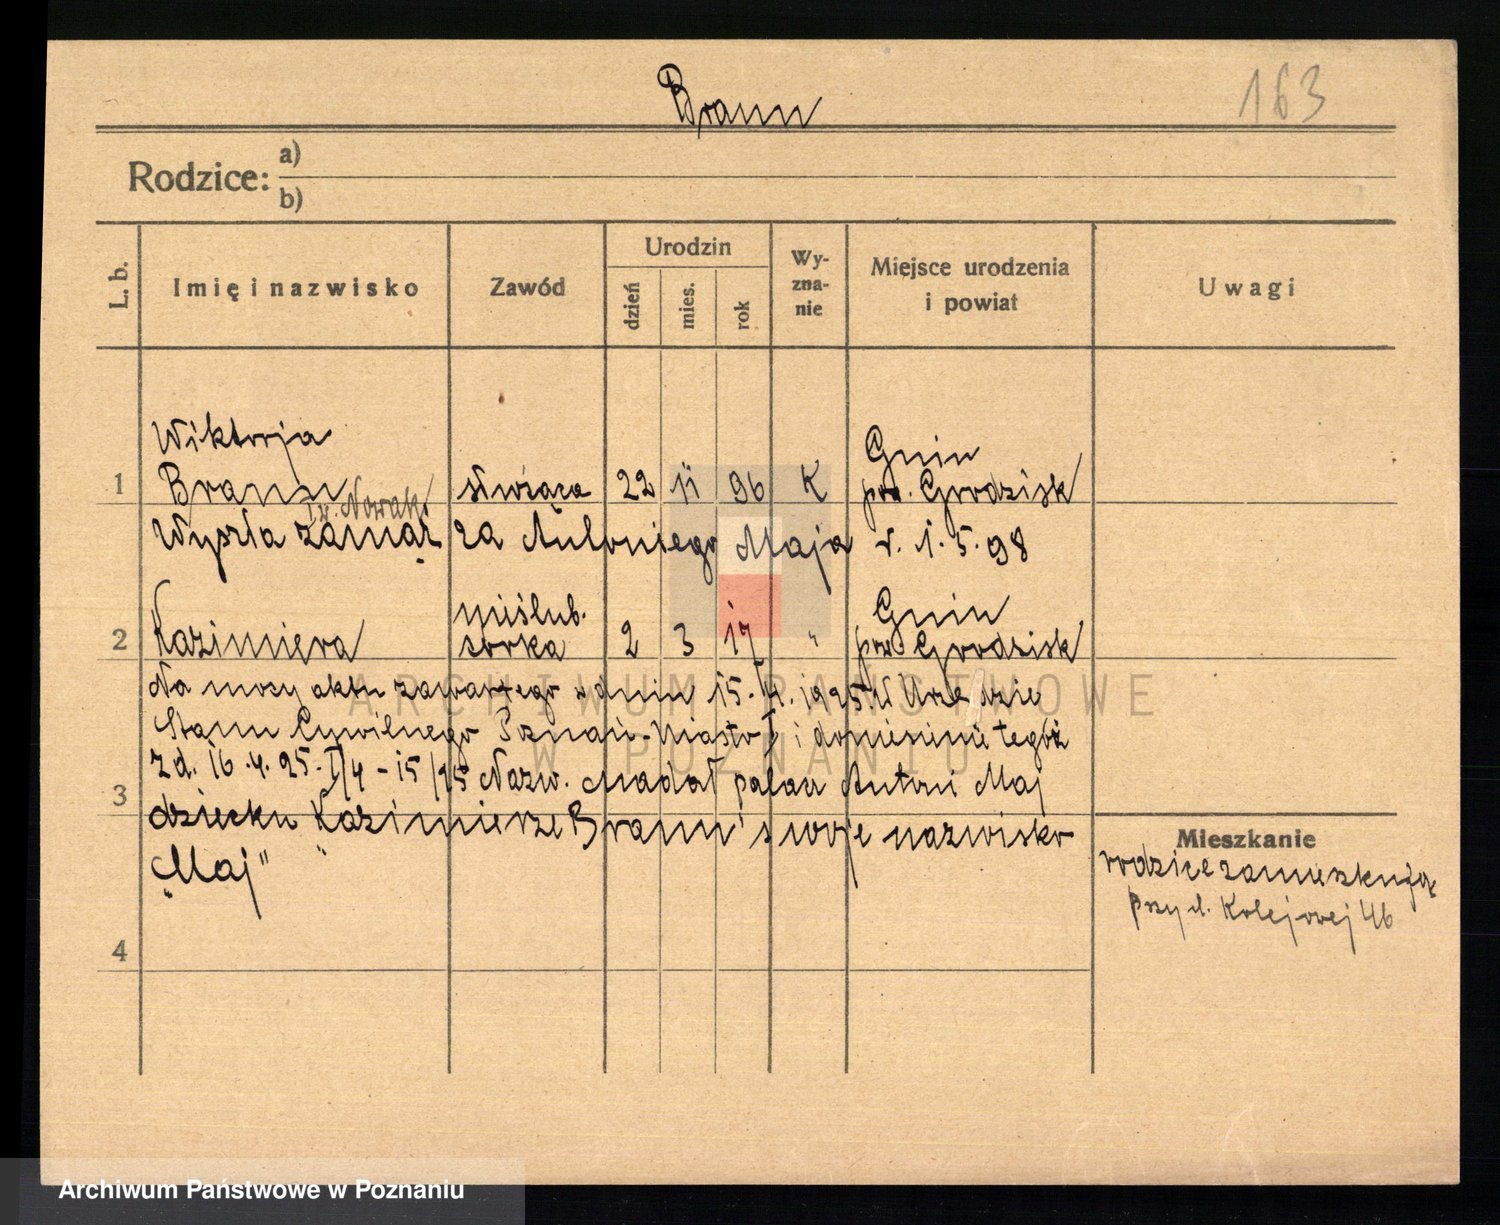 Braun
163
Rodzice:
a)
b)
L. b.
Imię i nazwisko
Zawód
Urodzin
dzień
mies.
rok
Wy-
zna-
nie
Miejsce urodzenia
i powiat
Uwagi
Wiktorja
Gnin
1 Braun służąca 22 11 96 K pow. Grodzisk
Nowak
Wyszła zamąż za Antoniego Maja r. 1. 5. 98
nieślub. Gnin
2 Kazimiera córka 2 3 17 " pow. Grodzisk
Na mocy aktu zawartego w dniu 15. 4. 1925. W Urzędzie
Stanu Cywilnego Poznań-Miasto I i doniesienie tegoż
z d. 16. 4. 25. I/4 - 15/25 Nazw. nadał Antoni Maj
3
dziecku Kazimierze Braun swoje nazwisko
„Maj"
Mieszkanie
rodzice zamieszkują
przy ul. Kolejowej 46
4
ARCHIWUM PAŃSTWOWE
W POZNANIU
Archiwum Państwowe w Poznaniu